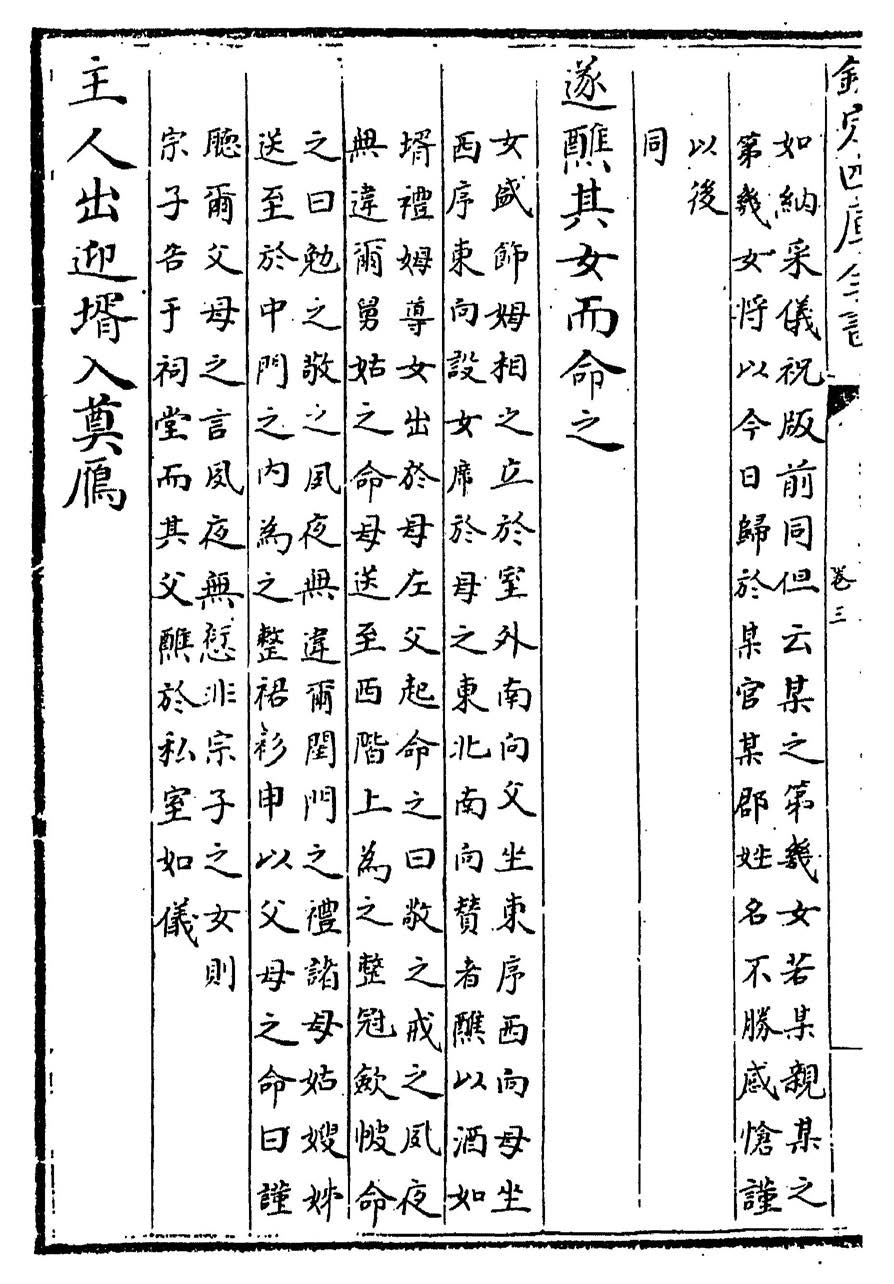 欽定四庫全書
卷三
如納采儀祝版前同但云某之第幾女若某親某之
第幾女將以今日歸於某官某郡姓名不勝感愴謹
以後
同
遂醮其女而命之
女盛飾姆相之立於室外南向父坐東序西向母坐
西序東向設女席於母之東北南向贊者醮以酒如
壻禮姆導女出於母左父起命之曰敬之戒之夙夜
無違爾舅姑之命母送至西階上為之整冠斂帔命
之曰勉之敬之夙夜無違爾閨門之禮諸母姑嫂姊
送至於中門之内為之整裙衫申以父母之命曰謹
聽爾父母之言夙夜無愆非宗子之女則
宗子告于祠堂而其父醮於私室如儀
主人出迎壻入奠鴈